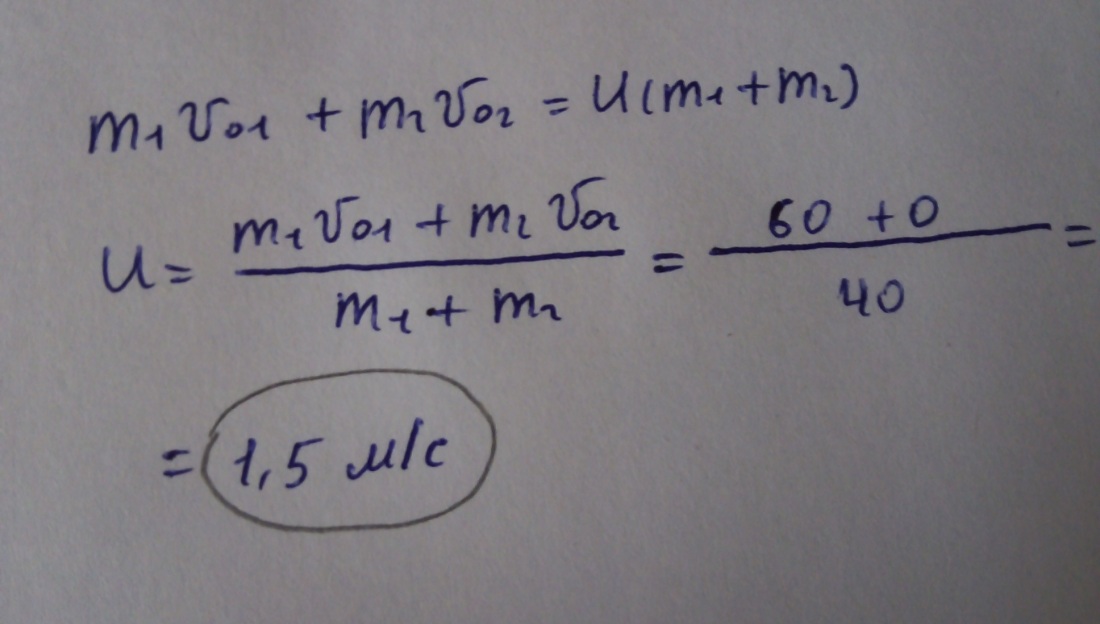 m₁ v₀₁ + m₂ v₀₂ = U(m₁ + m₂)
U = (m₁ v₀₁ + m₂ v₀₂) / (m₁ + m₂) = (60 + 0) / 40 =
= 1,5 м/с